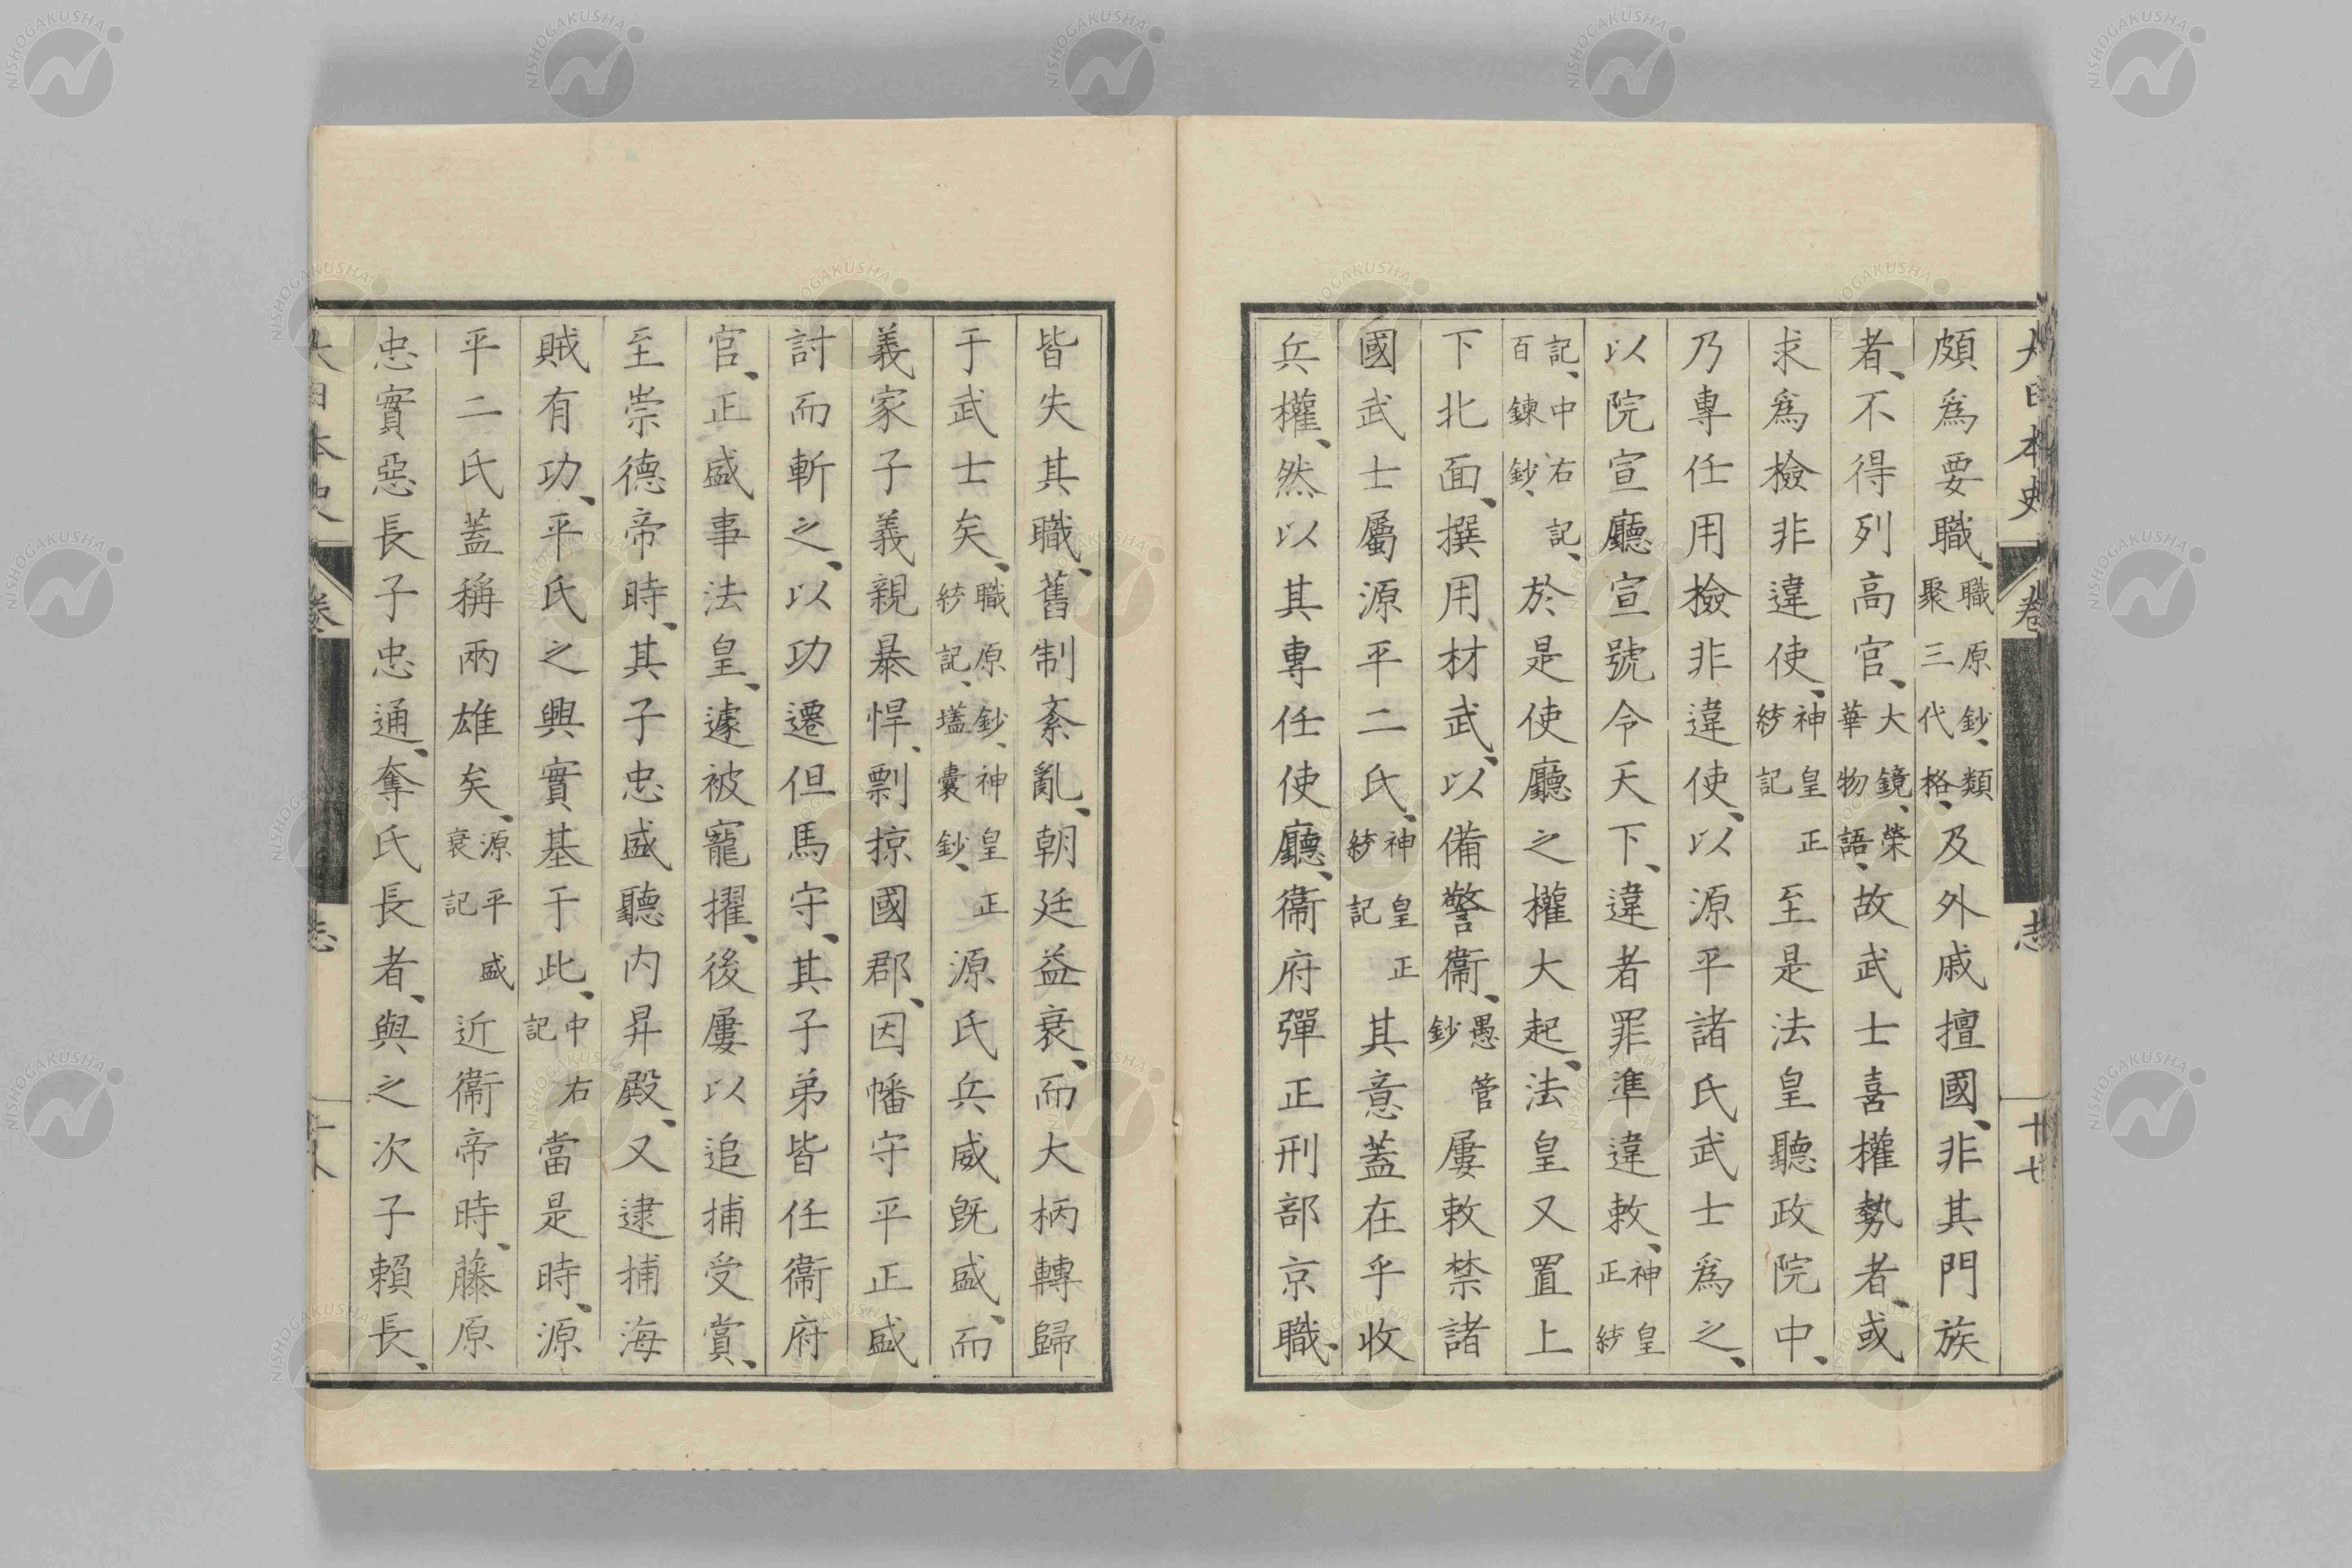 大日本史 卷 志 廿七
頗爲要職、職原鈔、類聚三代格、及外戚擅國、非其門族
者、不得列高官、大鏡、榮華物語、故武士喜權勢者、或
求爲檢非違使、神皇正統記至是法皇聽政院中、
乃專任用檢非違使、以源平諸氏武士爲之、
以院宣廳宣號令天下、違者罪準違敕、神皇正統
記、中右記、百鍊鈔、於是使廳之權大起、法皇又置上
下北面、撰用材武、以備警衞、愚管鈔屢敕禁諸
國武士屬源平二氏、神皇正統記其意蓋在乎收
兵權、然以其專任使廳、衞府彈正刑部京職、
皆失其職、舊制紊亂、朝廷益衰、而大柄轉歸
于武士矣、職原鈔、神皇正統記、壒囊鈔、源氏兵威既盛、而
義家子義親暴悍、剽掠國郡、因幡守平正盛
討而斬之、以功遷但馬守、其子弟皆任衞府
官、正盛事法皇、遽被寵擢、後屢以追捕受賞、
至崇德帝時、其子忠盛聽內昇殿、又逮捕海
賊有功、平氏之興實基于此、中右記當是時、源
平二氏蓋稱兩雄矣、源平盛衰記近衞帝時、藤原
忠實惡長子忠通、奪氏長者、與之次子賴長、
大日本史 卷 志